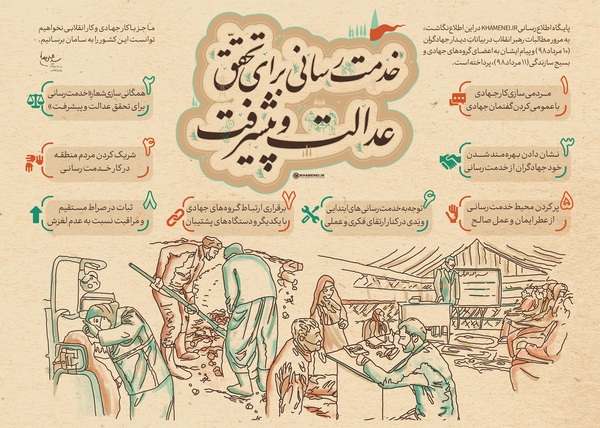 پایگاه اطلاع‌رسانی KHAMENEI.IR در این اطلاع‌نگاشت،
به مرور مطالبات رهبر انقلاب در بیانات دیدار جهادگران
(۱۰ مرداد ۹۸) و پیام ایشان به اعضای گروه‌های جهادی و
بسیج سازندگی (۱۱ مرداد ۹۸)، پرداخته است.
ما جز با کار جهادی و کار انقلابی نخواهیم
توانست این کشور را به سامان برسانیم.
خدمت رسانی برای تحقق
عدالت و پیشرفت
KHAMENEI.IR
۱
مردمی سازی کار جهادی
با عمومی کردن گفتمان جهادی
۲
همگانی سازی شعار «خدمت رسانی
برای تحقق عدالت و پیشرفت»
۳
نشان دادن بهره مند شدن
خود جهادگران از خدمت رسانی
۴
شریک کردن مردم منطقه
در کار خدمت رسانی
۵
پر کردن محیط خدمت رسانی
از عطر ایمان و عمل صالح
۶
توجه به خدمت رسانی های ابتدایی
و یَدی در کنار ارتقای فکری و عملی
۷
برقراری ارتباط گروه های جهادی
با یکدیگر و دستگاه های پشتیبان
۸
ثبات در صراط مستقیم
و مراقبت نسبت به عدم لغزش